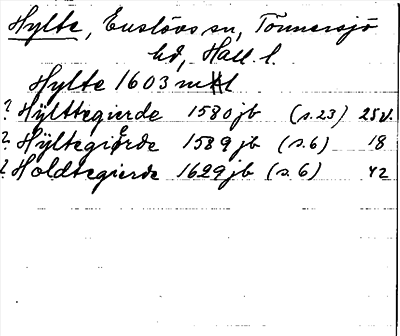 Hylte, Enslövs sn, Tönnersjö
hd, Hall. l.
Hylte 1603 mtl
? Hÿlttegierde 1580 jb (s. 23) 25v.
? Hÿltegierde 1589 jb (s. 6) 18
? Holdtegierde 1629 jb (s. 6) 42